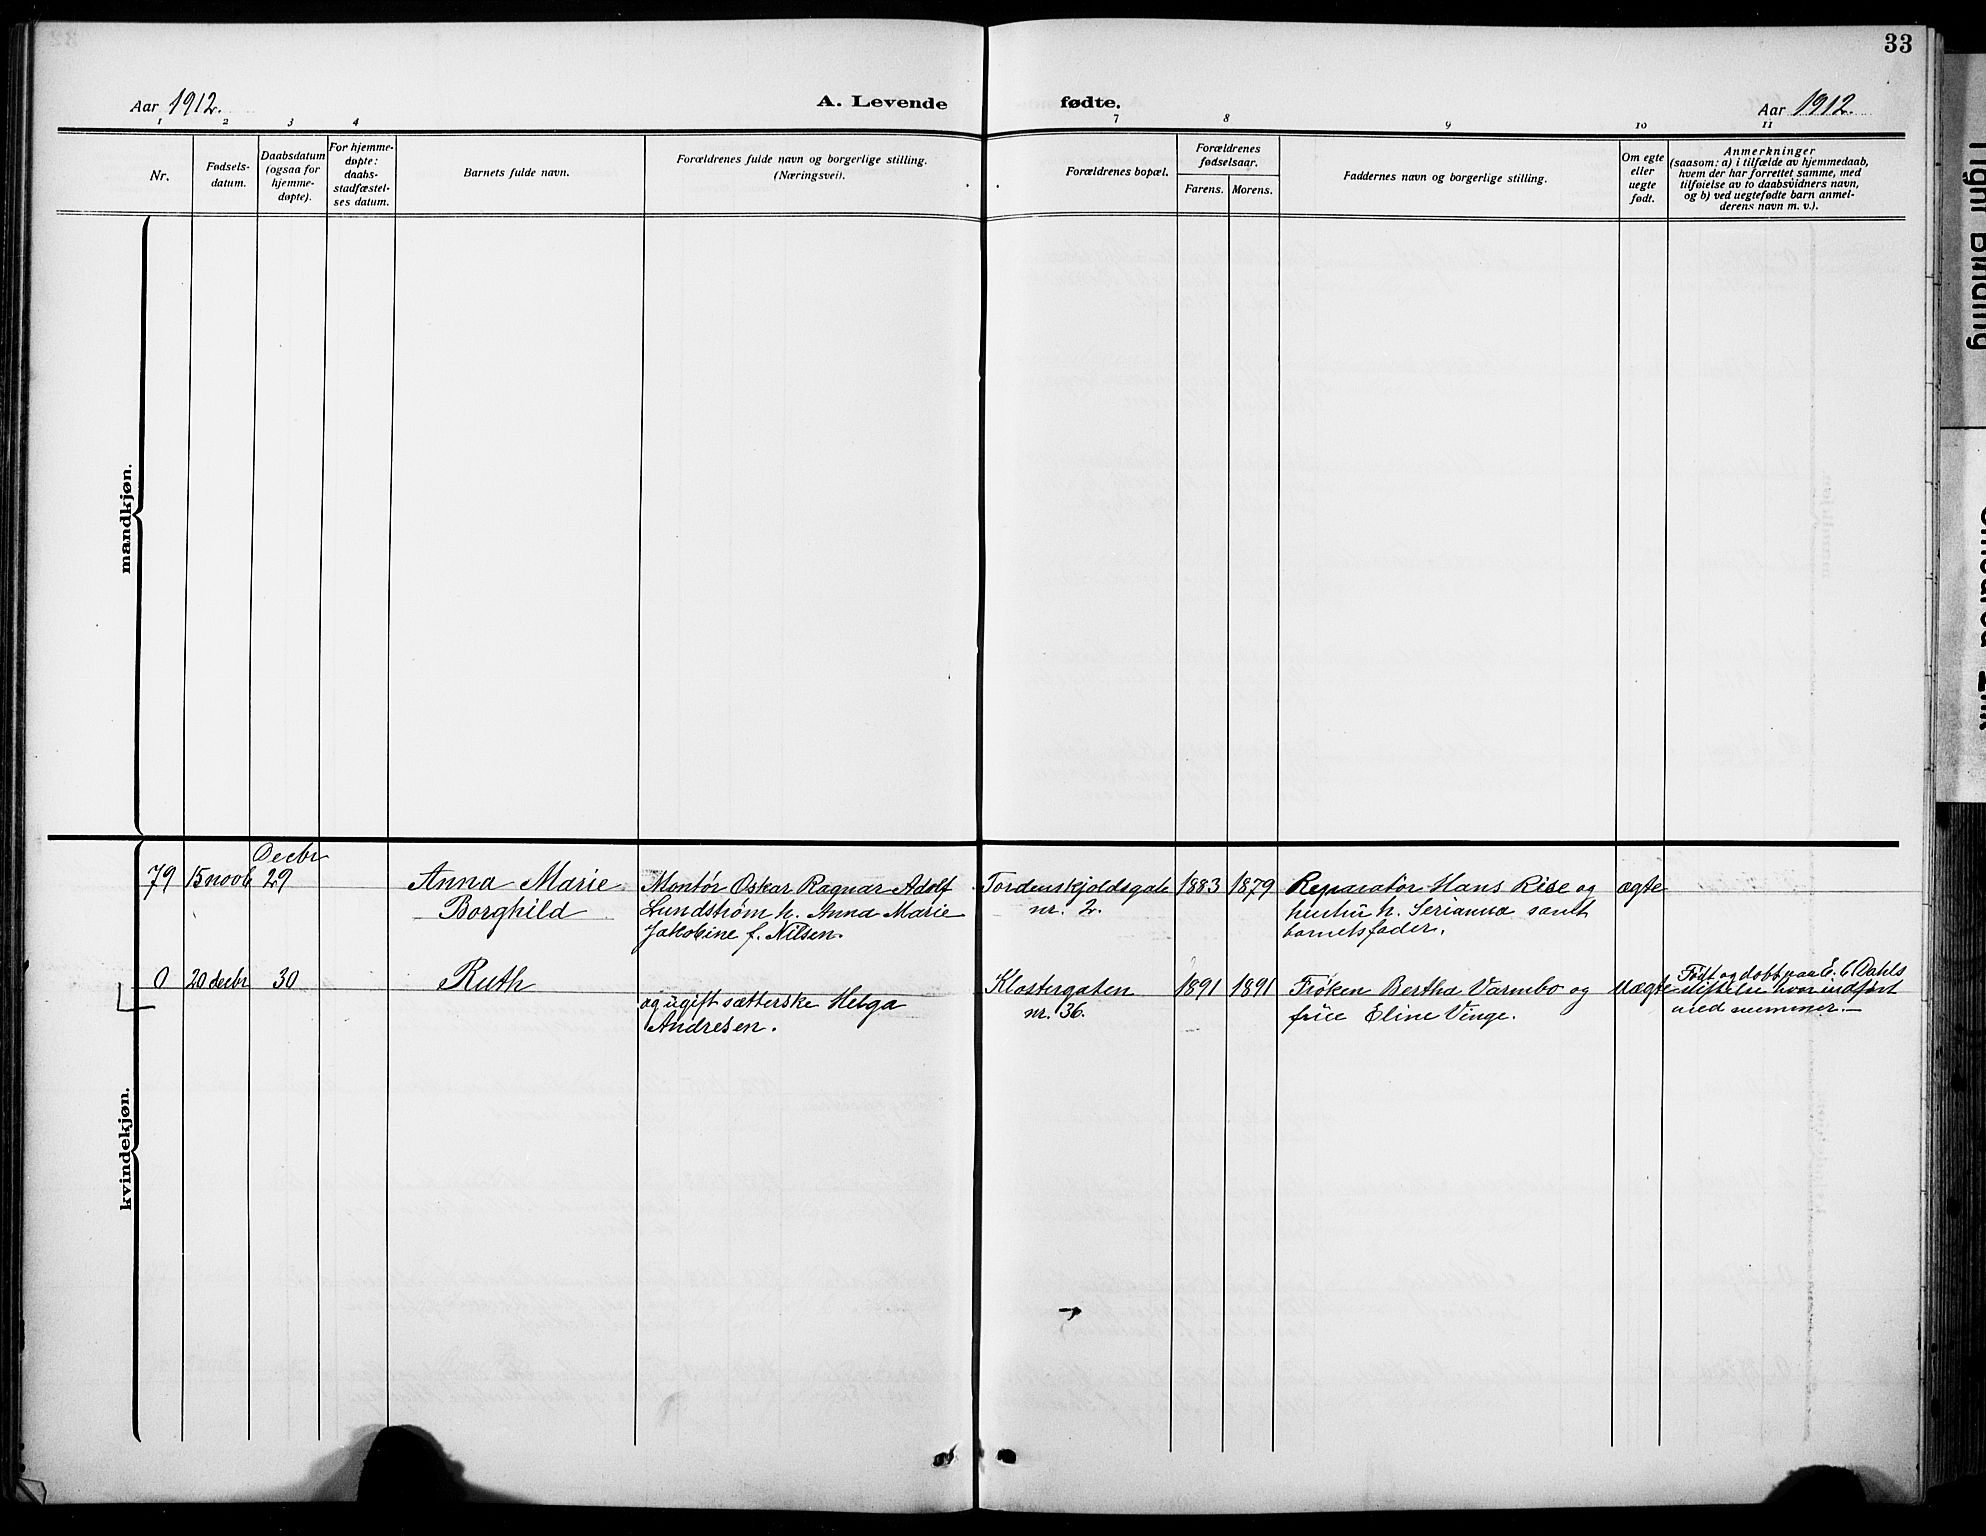 33
Aar 1912.
A. Levende fødte.
Aar 1912.
1 2 3 4 7 8 9 10 11
Nr.
Fødsels-
datum.
Daabsdatum
(ogsaa for
hjemme-
døpte).
For hjemme-
døpte:
daabs-
stadfæstel-
ses datum.
Barnets fulde navn.
Forældrenes fulde navn og borgerlige stilling.
(Næringsvei).
Forældrenes bopæl.
Forældrenes
fødselsaar.
Farens. Morens.
Faddernes navn og borgerlige stilling.
Om egte
eller
uegte
født.
Anmerkninger
(saasom: a) i tilfælde av hjemmedaab,
hvem der har forrettet samme, med
tilføielse av to daabsvidners navn,
og b) ved uegtefødte barn anmel-
derens navn m. v.).
mandkjøn.
kvindekjøn.
79
15 novb
Decbr
29
Anna Marie
Borghild
Montør Oskar Ragnar Adolf
Lundstrøm h. Anna Marie
Jakobine f. Nilsen.
Tordenskjoldsgate
nr. 2.
1883 1879
Reparatør Hans Rise og
hustru h. Serianna samt
barnets fader.
ægte
0
20 decbr
30
Ruth
og ugift sætterske Helga
Andresen.
Klostergaten
nr. 36.
1891 1891
Frøken Bertha Varmbo og
frue Eline Vinge.
uægte
Født og døbt paa E. C Dahls
stiftelse hvor indført
med nummer.—